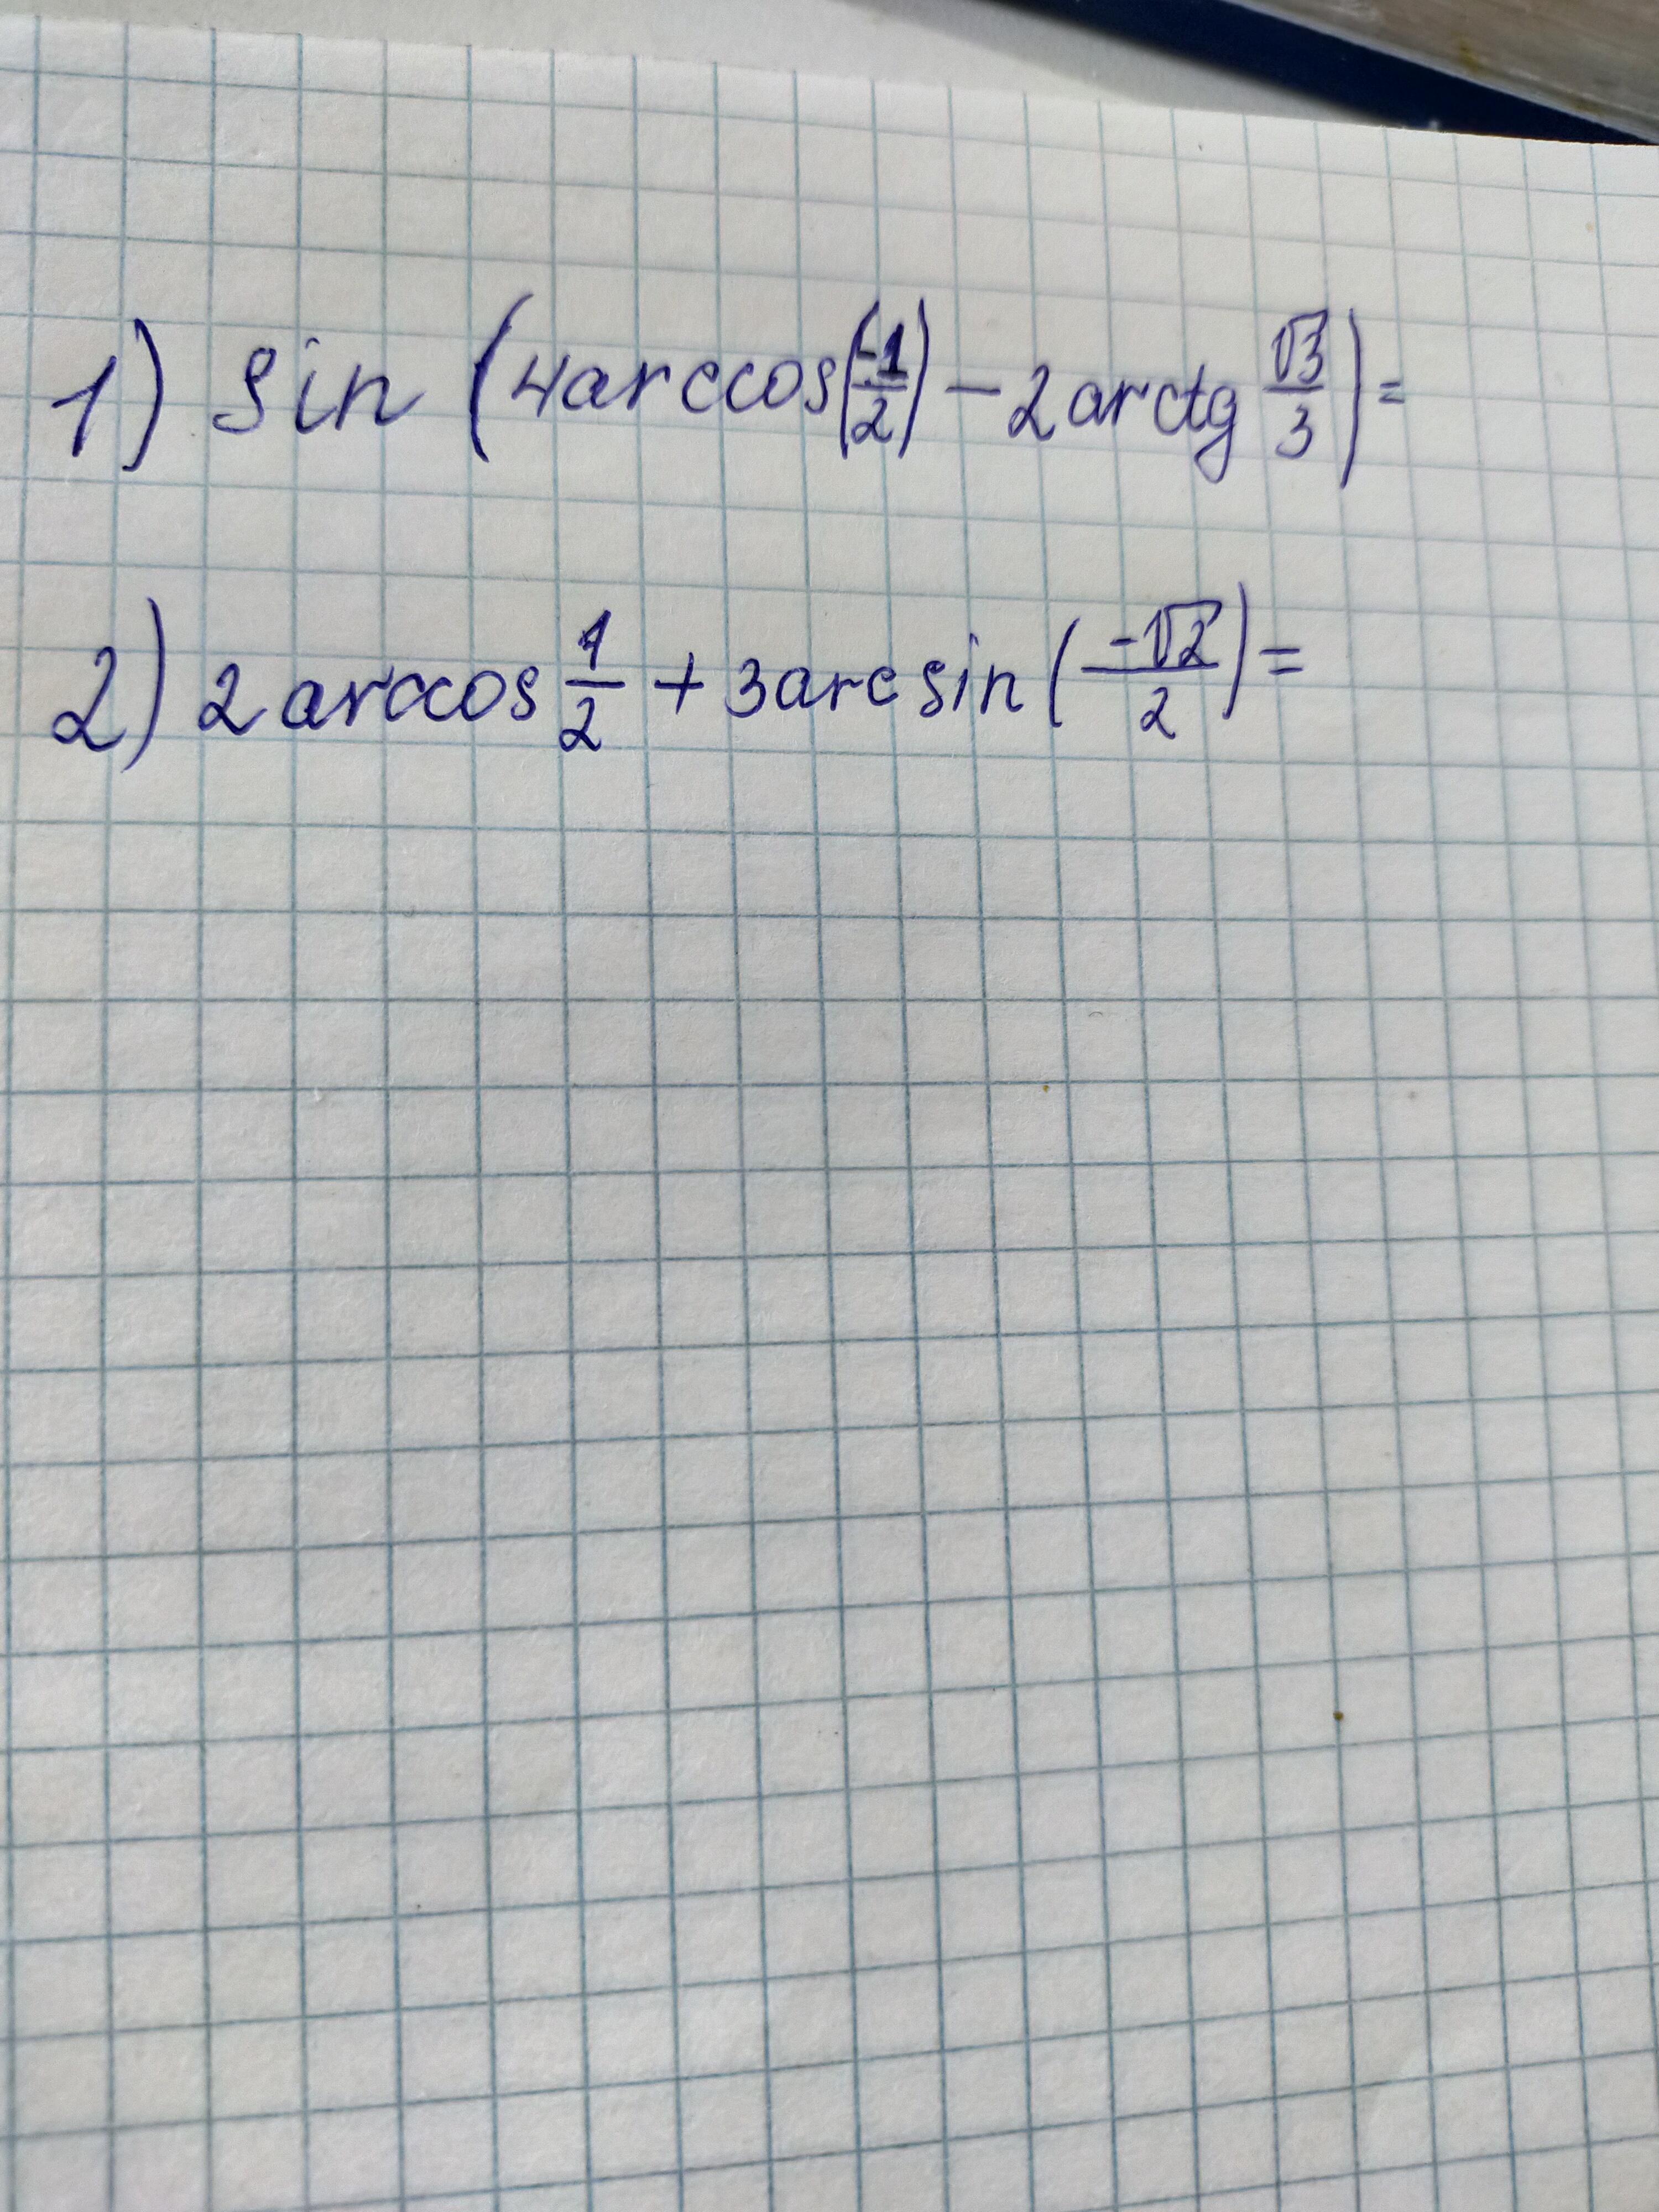 1) sin (4arccos(-1/2) - 2arctg √3/3) =
2) 2arccos 1/2 + 3arcsin(-√2/2) =